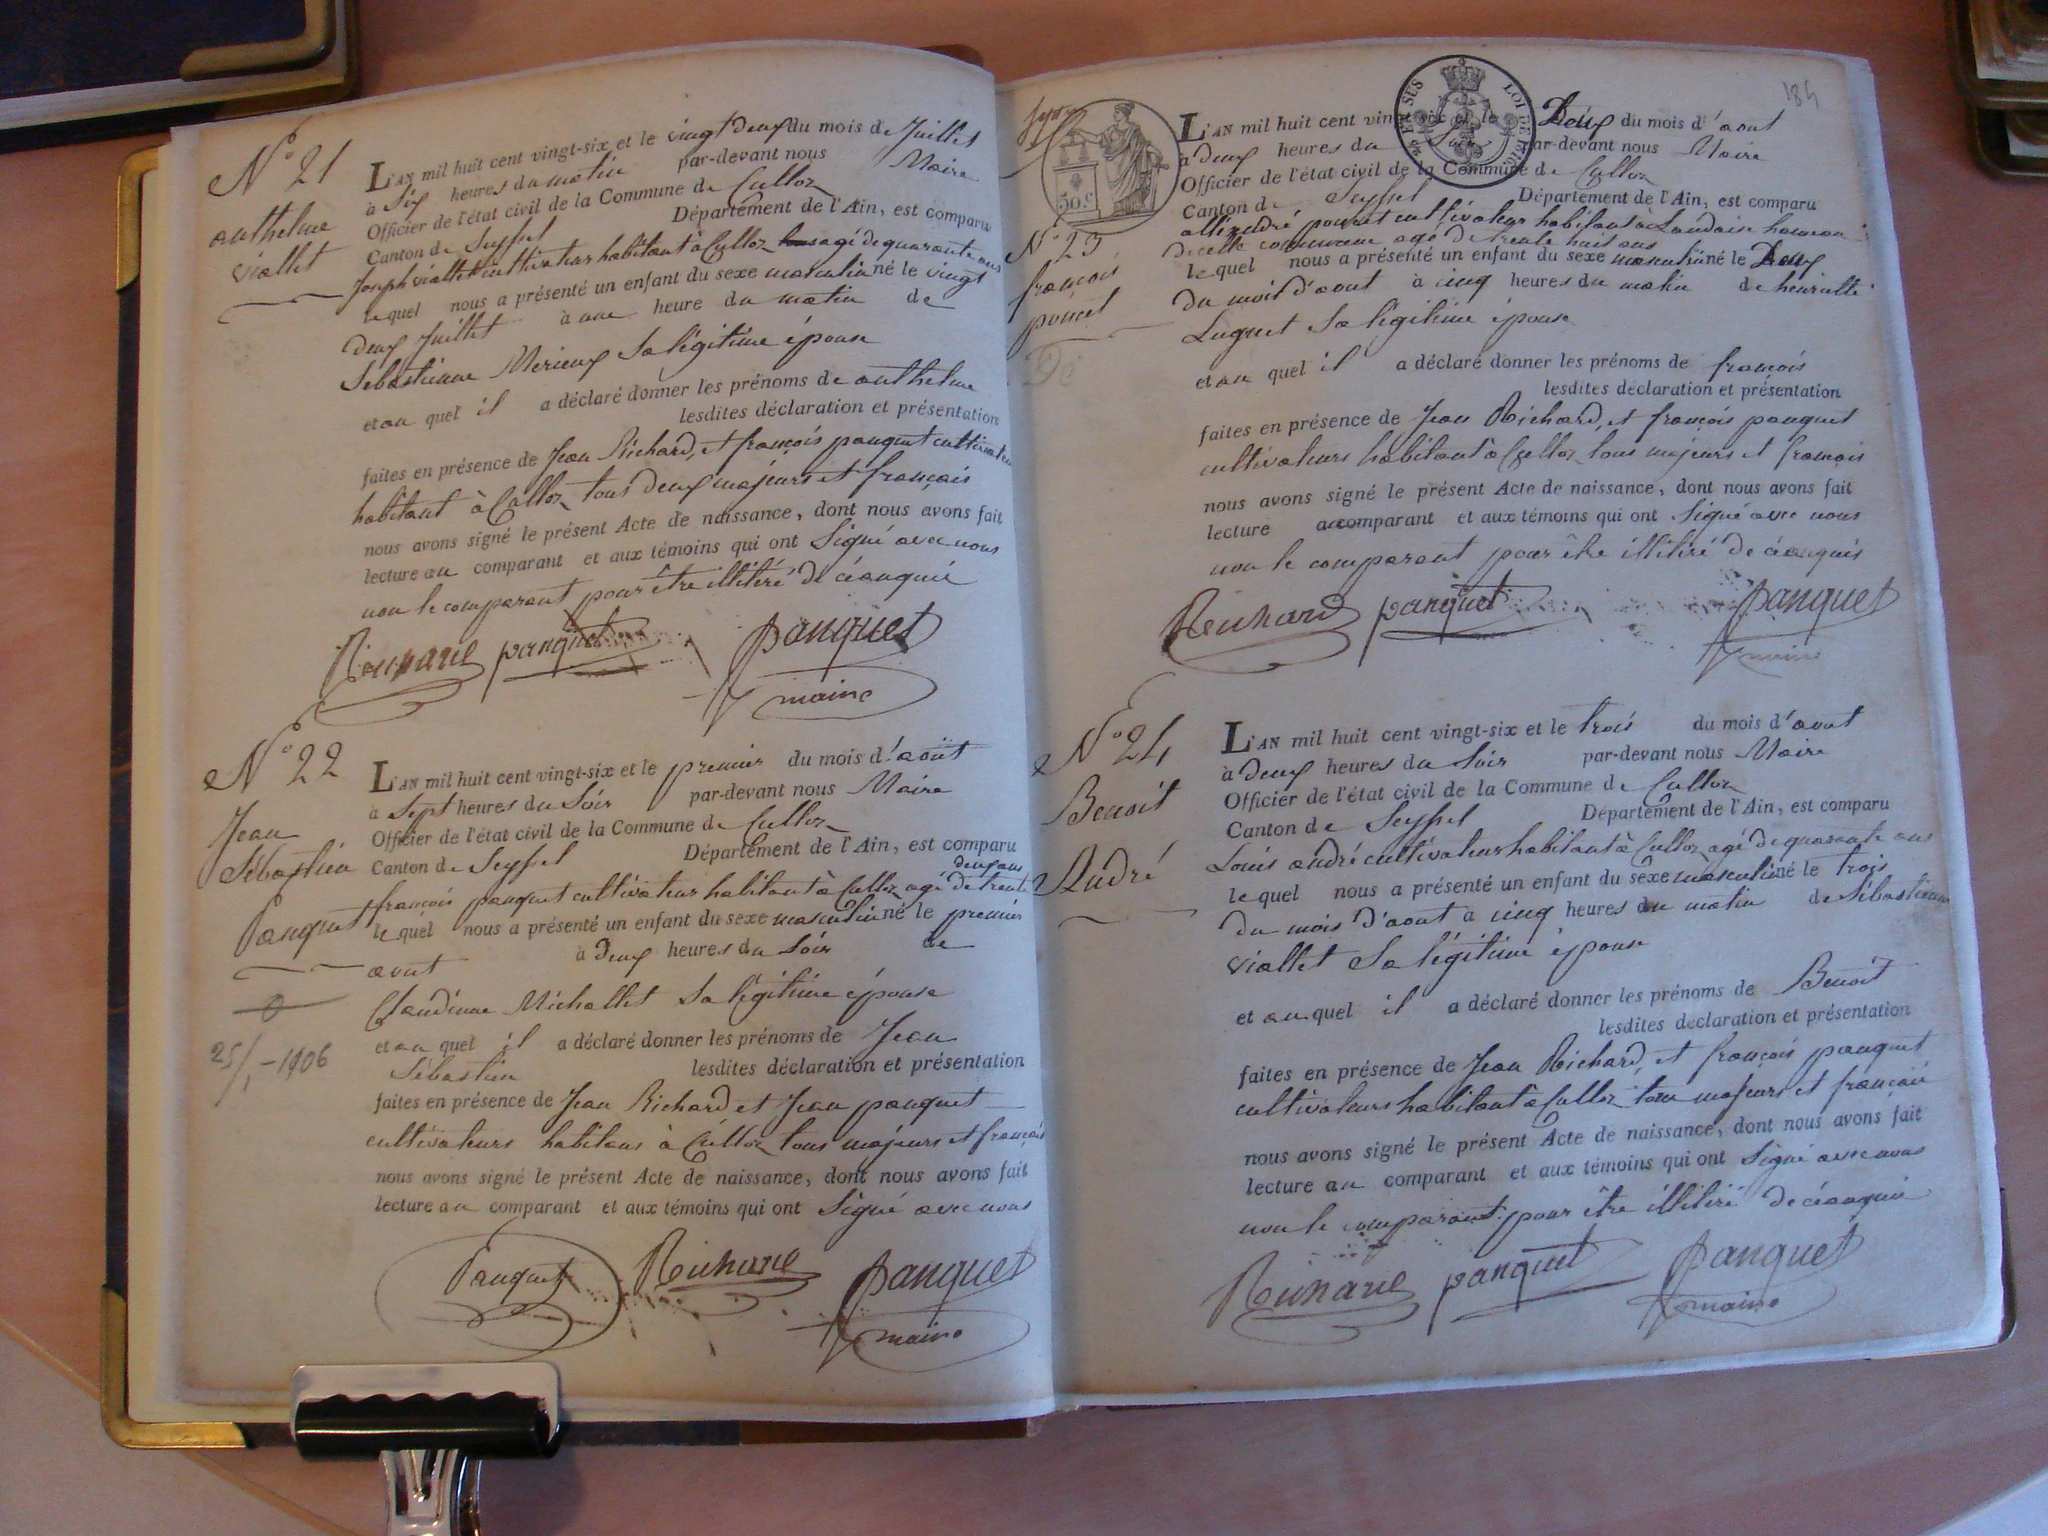 N° 21
anthelme
viallet
L'AN mil huit cent vingt-six et le vingt deux du mois de Juillet
à Six heures du matin par-devant nous Maire
Officier de l'état civil de la Commune de Culloz
Canton de Seyssel Département de l'Ain, est comparu
Joseph viallet cultivateur habitant à Culloz agé de quarante ans
le quel nous a présenté un enfant du sexe masculin né le vingt
deux Juillet à une heure du matin de
Sébastienne Mérieux Sa légitime épouse
et au quel il a déclaré donner les prénoms de anthelme
lesdites déclaration et présentation
faites en présence de Jean Richard, et françois panquet cultivateurs
habitant à Culloz tous deux majeurs et français
nous avons signé le présent Acte de naissance, dont nous avons fait
lecture au comparant et aux témoins qui ont Signé avec nous
non le comparant pour être illitiré de ce anquis
Richard panquet panquet
maire
N° 22
Jean
Sébastien
Panquet
25/1-1906
L'AN mil huit cent vingt-six et le premier du mois d'août
à Sept heures du Soir par-devant nous Maire
Officier de l'état civil de la Commune de Culloz
Canton de Seyssel Département de l'Ain, est comparu
deux ans
françois panquet cultivateur habitant à Culloz agé de trente
le quel nous a présenté un enfant du sexe masculin né le premier
aout à deux heures du Soir de
Claudinne Michallet Sa légitime épouse
et au quel il a déclaré donner les prénoms de Jean
Sébastien lesdites déclaration et présentation
faites en présence de Jean Richard et Jean panquet
cultivateurs habitans à Culloz tous majeurs et français
nous avons signé le présent Acte de naissance, dont nous avons fait
lecture au comparant et aux témoins qui ont Signé avec nous
Panquet Richard panquet
maire
184
50 c
N° 23
françois
poncet
L'AN mil huit cent vingt-six et le Deux du mois d'aout
à deux heures du Soir par-devant nous Maire
Officier de l'état civil de la Commune de Culloz
Canton de Seyssel Département de l'Ain, est comparu
poncet cultivateur habitant à Landaise hameau
de cette commune agé de trente huit ans
le quel nous a présenté un enfant du sexe masculin né le Deux
du mois d'aout à cinq heures du matin de henriette
Luguet Sa légitime épouse
et au quel il a déclaré donner les prénoms de françois
lesdites déclaration et présentation
faites en présence de Jean Richard, et françois panquet
cultivateurs habitant à Culloz tous majeurs et français
nous avons signé le présent Acte de naissance, dont nous avons fait
lecture au comparant et aux témoins qui ont Signé avec nous
non le comparant pour être illitiré de ce anquis
Richard panquet panquet
maire
N° 24
Benoit
André
L'AN mil huit cent vingt-six et le trois du mois d'aout
à deux heures du Soir par-devant nous Maire
Officier de l'état civil de la Commune de Culloz
Canton de Seyssel Département de l'Ain, est comparu
Louis andré cultivateur habitant à Culloz agé de quarante ans
le quel nous a présenté un enfant du sexe masculin né le trois
du mois d'aout à cinq heures du matin de Sébastienne
viallet Sa légitime épouse
et au quel il a déclaré donner les prénoms de Benoit
lesdites déclaration et présentation
faites en présence de Jean Richard, et françois panquet
cultivateurs habitant à Culloz tous majeurs et français
nous avons signé le présent Acte de naissance, dont nous avons fait
lecture au comparant et aux témoins qui ont Signé avec nous
non le comparant pour être illitiré de ce anquis
Richard panquet panquet
maire